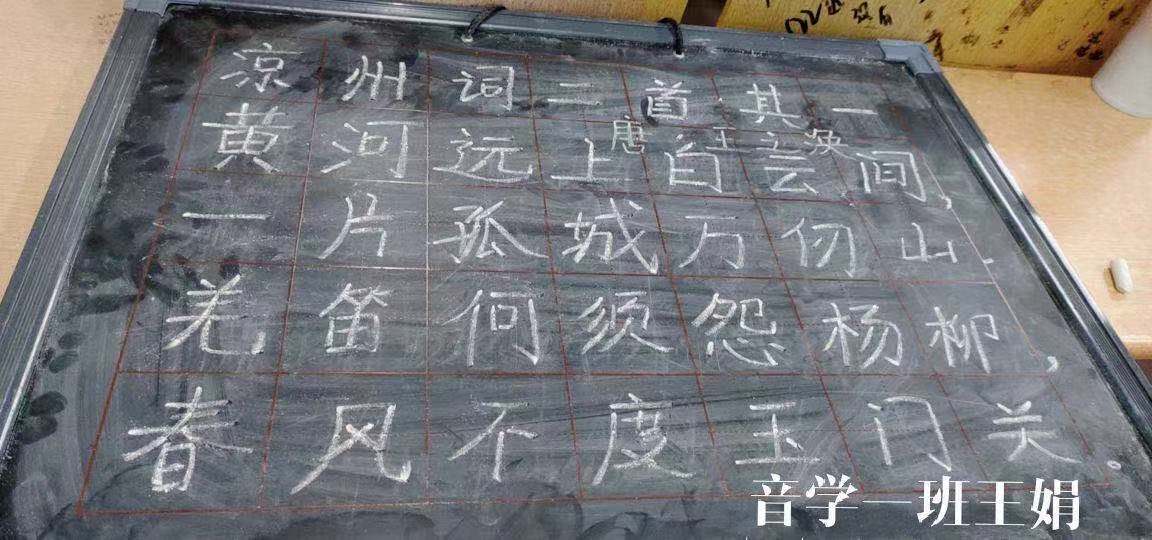 凉州词二首·其一
唐 王之涣
黄河远上白云间,
一片孤城万仞山.
羌笛何须怨杨柳,
春风不度玉门关
音学一班王娟